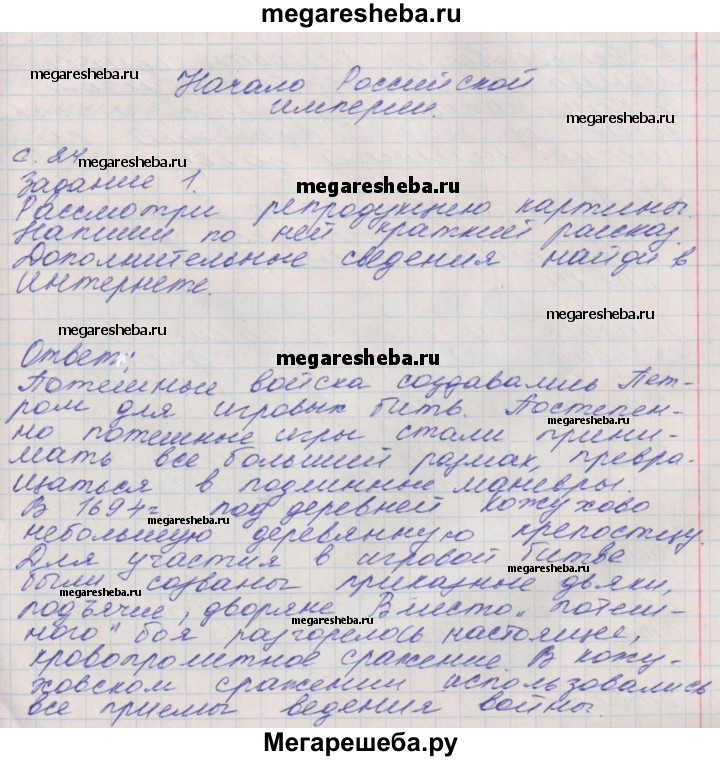 megaresheba.ru
megaresheba.ru
Начало Российской
империи.
megaresheba.ru
с. 24
megaresheba.ru
Задание 1.
megaresheba.ru
Рассмотри репродукцию картины.
Напиши по ней краткий рассказ.
Дополнительные сведения найди в
Интернете.
megaresheba.ru
megaresheba.ru
Ответ:
megaresheba.ru
Потешные войска создавались Пет-
ром для игровых битв. Постепен-
но потешные игры стали прини-
мать все больший размах, превра-
щаться в подлинные маневры.
В 1694г под деревней Кожухово
megaresheba.ru
небольшую деревянную крепостицу.
Для участия в игровой битве
megaresheba.ru
были созваны приказные дьяки,
megaresheba.ru
подъячие, дворяне. Вместо "потеш-
megaresheba.ru
ного" боя разгорелось настоящее,
кровопролитное сражение. В Кожу-
ховском сражении использовались
все приемы ведения войны.
Мегарешеба.ру